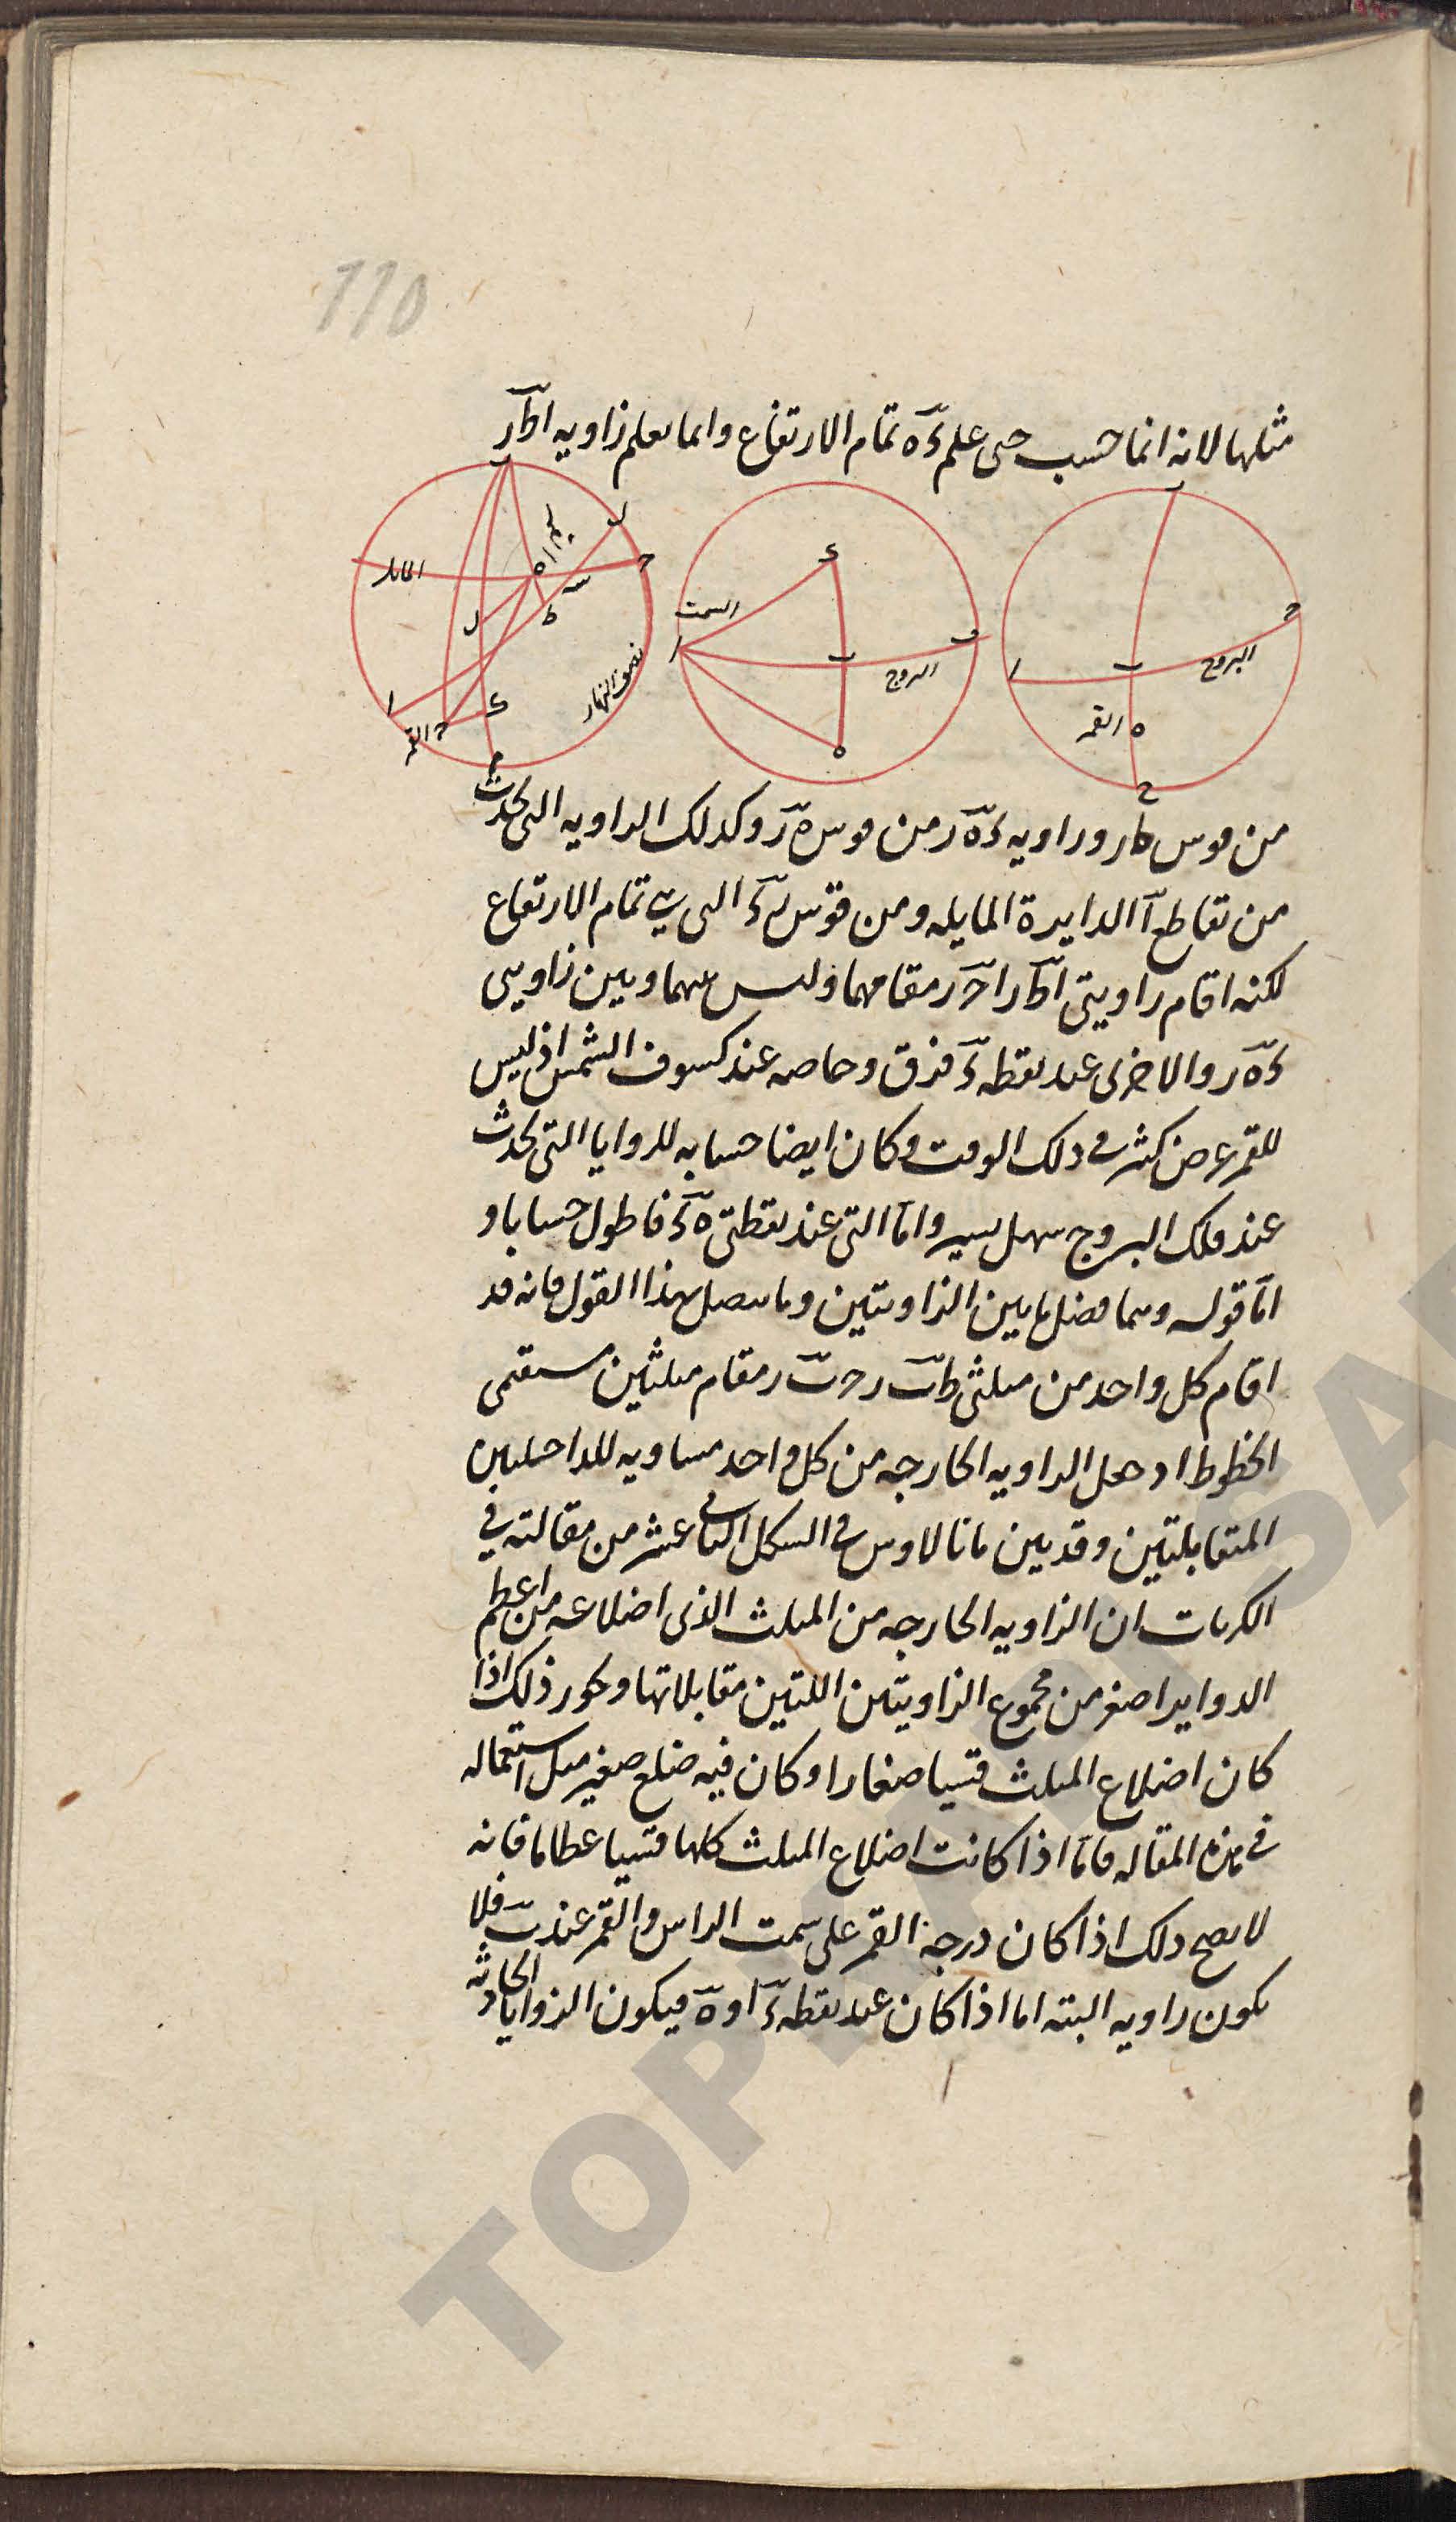 110
مثلها لانه انما حسب حتى علم ءه تمام الارتفاع وانما يعلم زاويه اطر
البروج
القمر
السمت
البروج
المايل
نصف النهار
القمر
من قوس طر وزاويه ءه ر من قوس ه ر وكذلك الزاويه التى تحدث
من تقاطع الدايرة المايله ومن قوس رء التى هى تمام الارتفاع
لكنه اقام زاويتى اطر احر مقامهما وليس بينهما وبين زاويتى
ءه ر والاخرى عند نقطه ء فرق وخاصه عند كسوف الشمس اذ ليس
للقمر عرض كثير فى ذلك الوقت وكان ايضا حسابه للزوايا التى تحدث
عند فلك البروج سهل يسير واما التى عند نقطتى ه ء فاطول حسابا و
اما قوله وبما فضل ما بين الزاويتين وما يتصل بهذا القول فانه قد
اقام كل واحد من مثلثى طب ر حب ر مقام مثلثين مستقيمى
الخطوط اذ جعل الزاويه الخارجه من كل واحد مساويه للداخلتين
المتقابلتين وقد بين مانالاوس فى الشكل عشر من مقالته فى
الكريات ان الزاويه الخارجه من المثلث الذى اضلاعه من اعظم
الدواير اصغر من مجموع الزاويتين اللتين مقابلاتها ويجوز ذلك اذا
كان اضلاع المثلث قسيا صغارا وكان فيه ضلع صغير مثل استعماله
فى هذه المقاله فاما اذا كانت اضلاع المثلث كلها قسيا عظاما فانه
لا يصح ذلك اذا كان درجة القمر على سمت الراس والقمر عند ب فلا
يكون زاويه البته اما اذا كان عند نقطه ء او ه فيكون الزوايا الحادثه